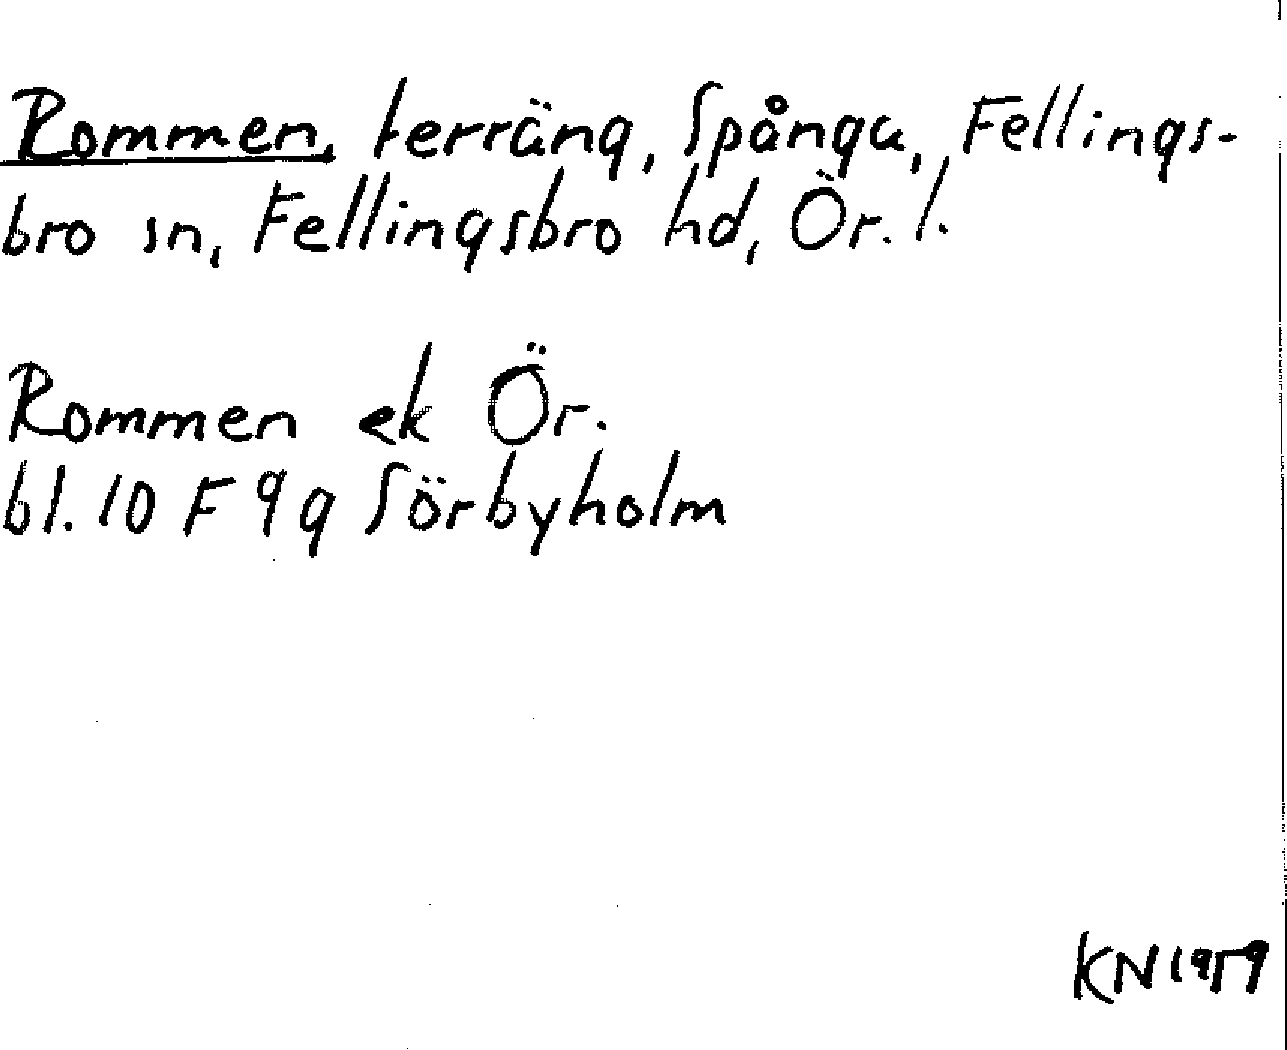 Rommen, terräng, Spånga, Fellings-
bro sn, Fellingsbro hd, Ör. l.
Rommen ek Ör.
bl. 10 F 9 g Sörbyholm
KN 1959